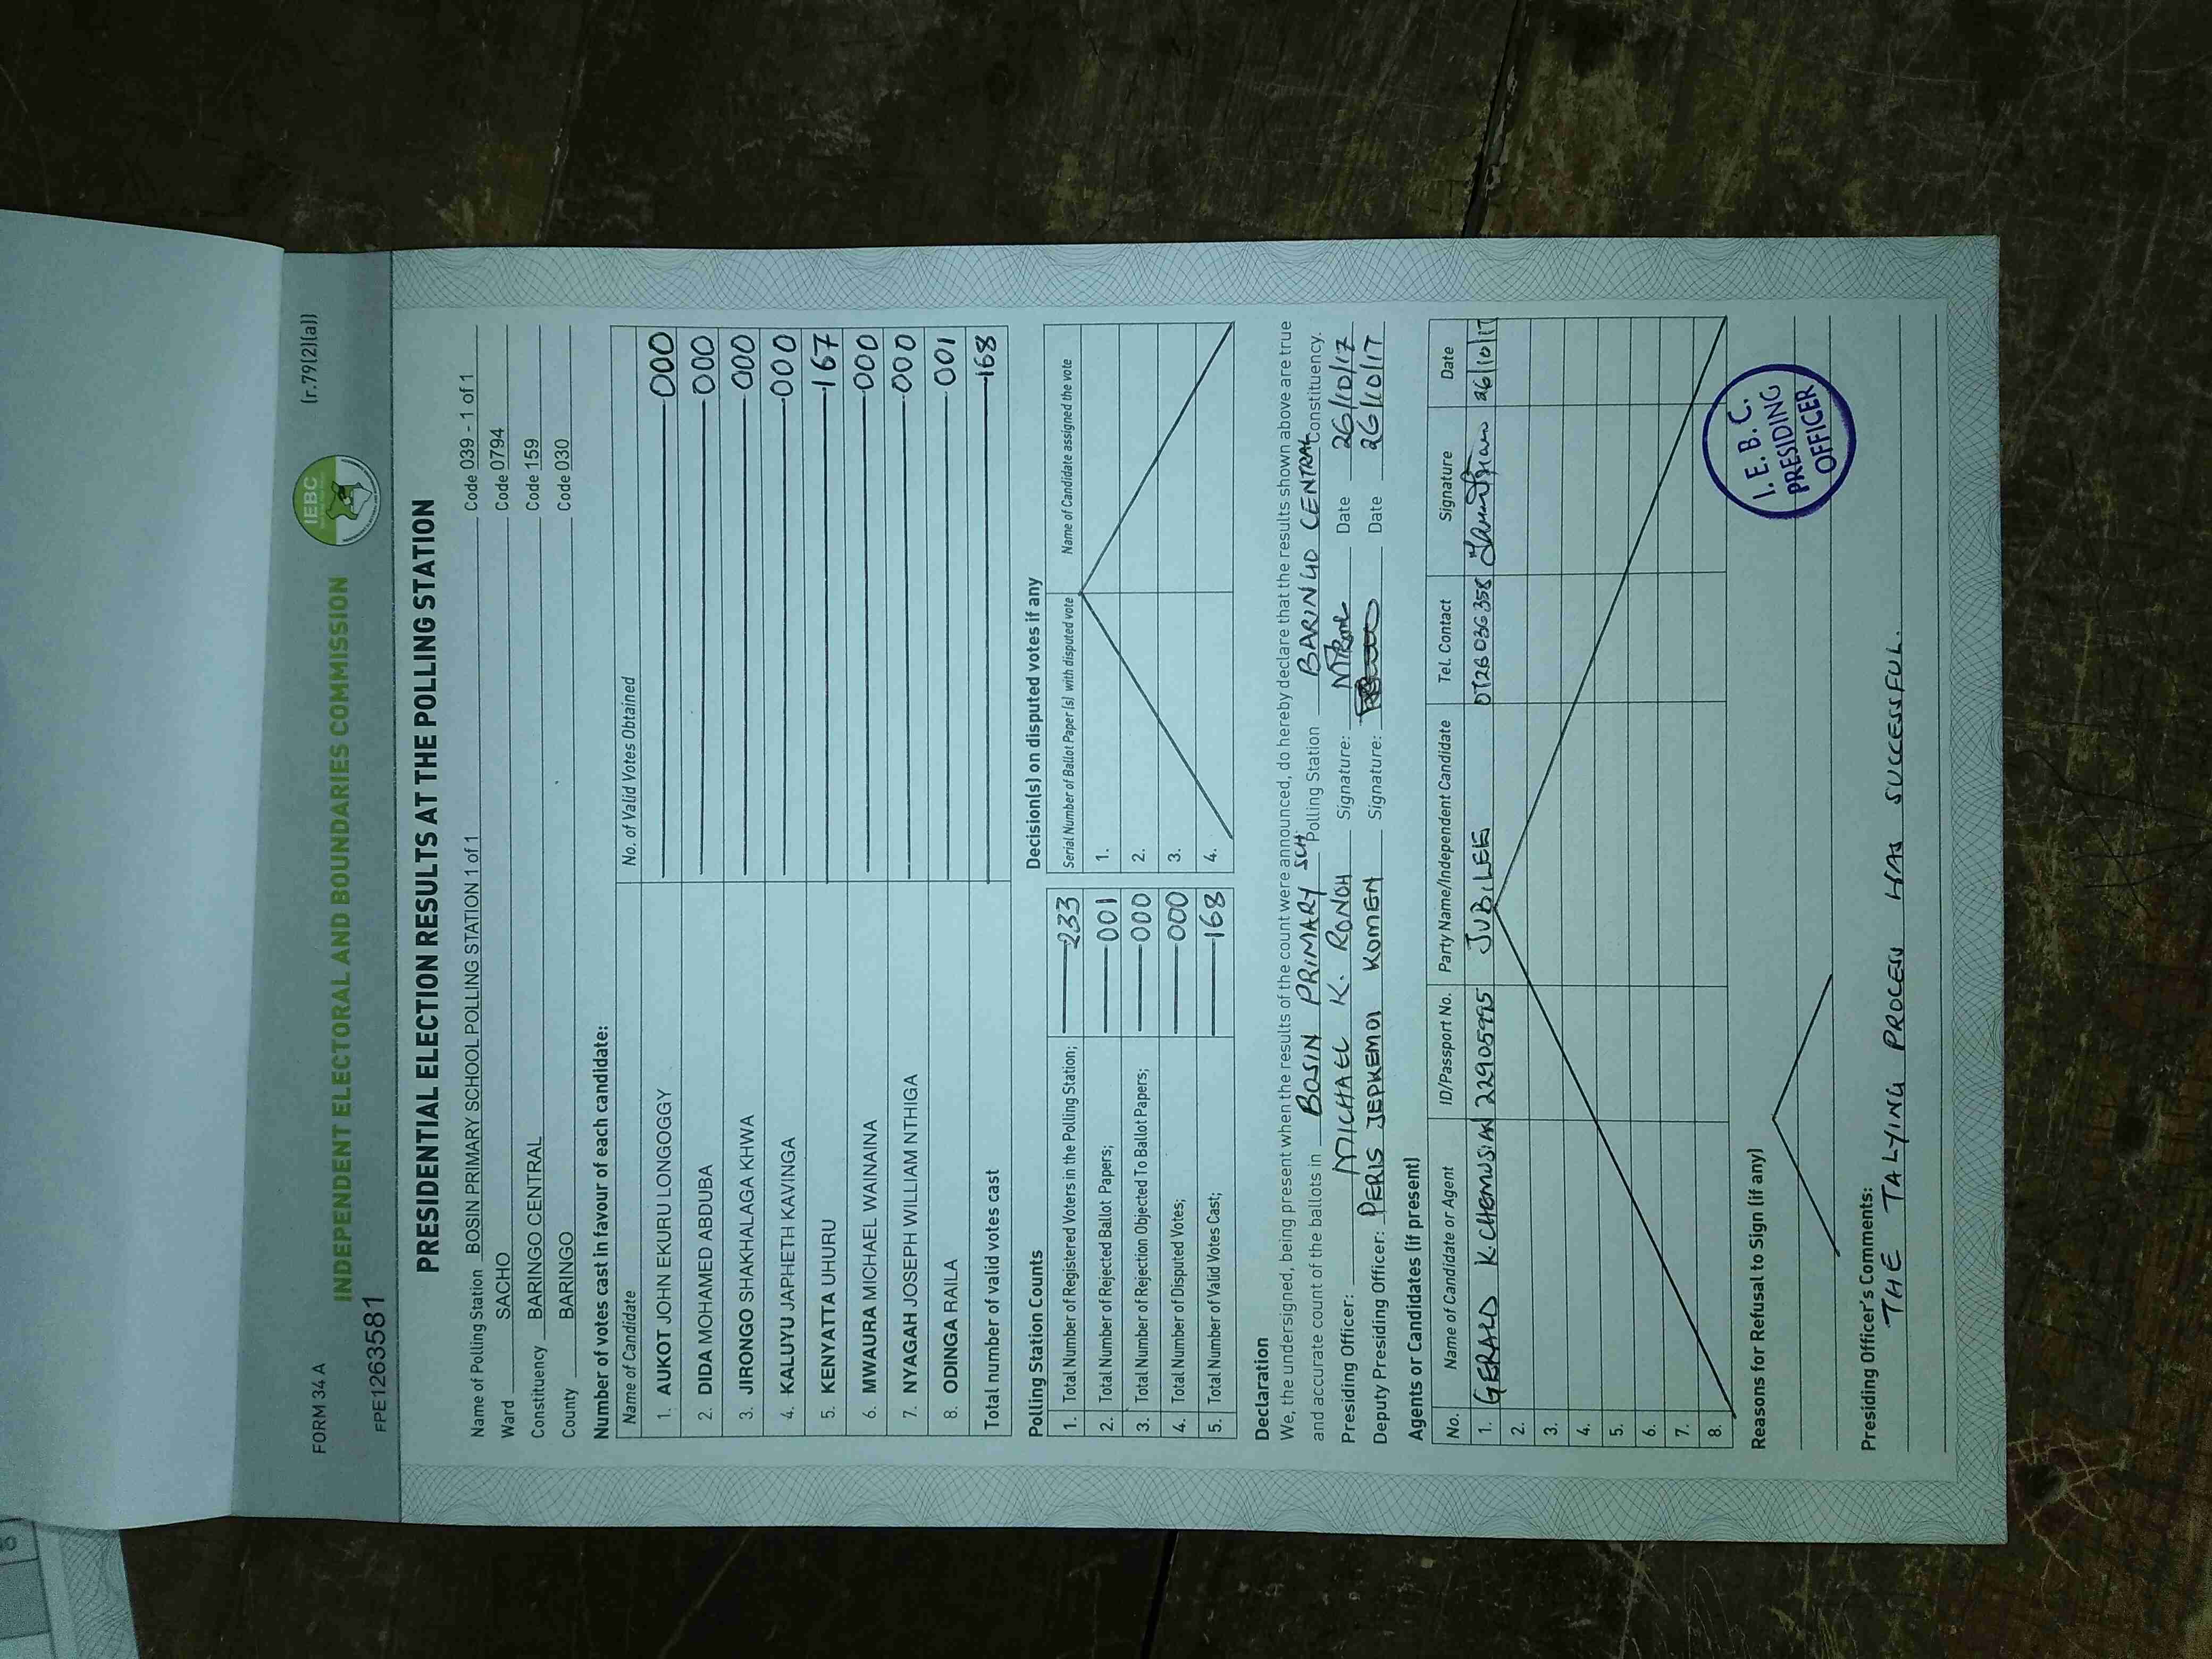 FORM 34 A
(r.79(2)(a))
INDEPENDENT ELECTORAL AND BOUNDARIES COMMISSION
IEBC
FPE1263581
PRESIDENTIAL ELECTION RESULTS AT THE POLLING STATION
Name of Polling Station BOSIN PRIMARY SCHOOL POLLING STATION 1 of 1 Code 039 - 1 of 1
Ward SACHO Code 0794
Constituency BARINGO CENTRAL Code 159
County BARINGO Code 030
Number of votes cast in favour of each candidate:
Name of Candidate No. of Valid Votes Obtained
1. AUKOT JOHN EKURU LONGOGGY 000
2. DIDA MOHAMED ABDUBA 000
3. JIRONGO SHAKHALAGA KHWA 000
4. KALUYU JAPHETH KAVINGA 000
5. KENYATTA UHURU 167
6. MWAURA MICHAEL WAINAINA 000
7. NYAGAH JOSEPH WILLIAM NTHIGA 000
8. ODINGA RAILA 001
Total number of valid votes cast 168
Polling Station Counts
1. Total Number of Registered Voters in the Polling Station; 233
2. Total Number of Rejected Ballot Papers; 001
3. Total Number of Rejection Objected To Ballot Papers; 000
4. Total Number of Disputed Votes; 000
5. Total Number of Valid Votes Cast; 168
Decision(s) on disputed votes if any
Serial Number of Ballot Paper (s) with disputed vote Name of Candidate assigned the vote
1.
2.
3.
4.
Declaration
We, the undersigned, being present when the results of the count were announced, do hereby declare that the results shown above are true
and accurate count of the ballots in BOSIN PRIMARY SCH. Polling Station BARINGO CENTRAL Constituency.
Presiding Officer: MICHAEL K. RONOH Signature: Date 26/10/17
Deputy Presiding Officer: PERIS JEPKEMOI KOMEN Signature: Date 26/10/17
Agents or Candidates (if present)
No. Name of Candidate or Agent ID/Passport No. Party Name/Independent Candidate Tel. Contact Signature Date
1. GERALD K. CHEMUSIAN JUBILEE 0726036358 26/10/17
2.
3.
4.
5.
6.
7.
8.
Reasons for Refusal to Sign (if any)
I.E.B.C.
PRESIDING
OFFICER
Presiding Officer's Comments:
THE TALYING PROCESS WAS SUCCESSFUL.